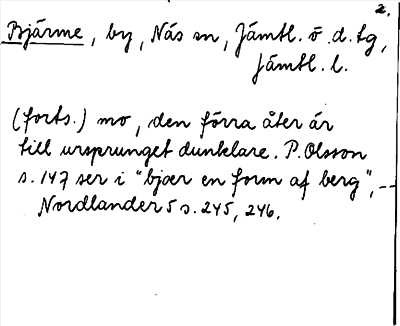 2.
Bjärme, by, Näs sn, Jämtl. ö. d. tg,
Jämtl. l.
(forts.) mo, den förra åter är
till ursprunget dunklare. P. Olsson
s. 147 ser i "bjær en form af berg", --
Nordlander 5 s. 245, 246.